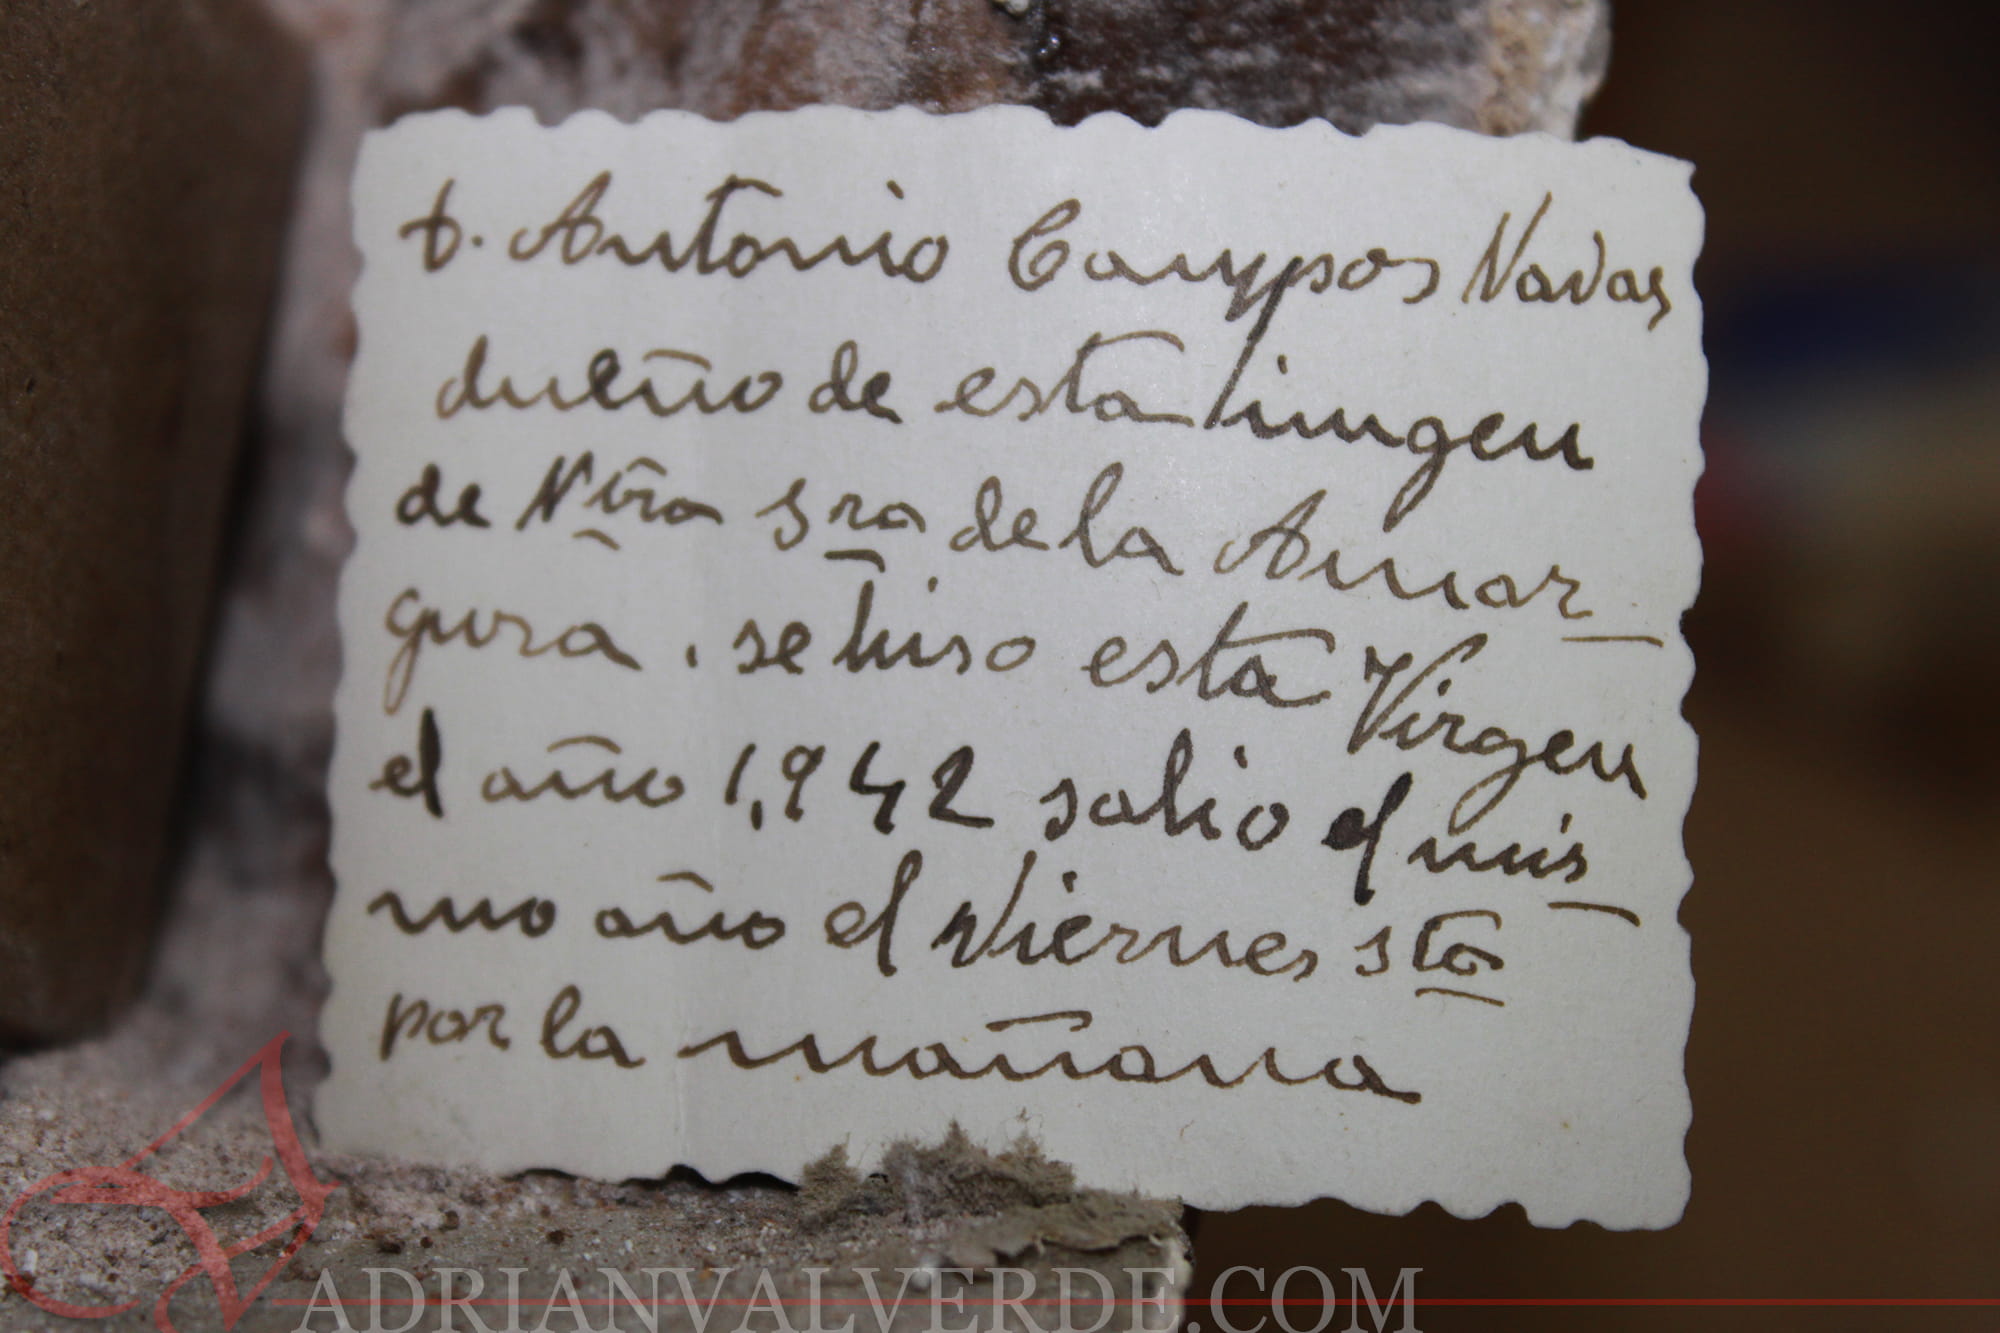 D. Antonio Campos Navas
dueño de esta imgen
de Ntra Sra de la Amar-
gura. se hiso esta Virgen
el año 1,942 salio el mis-
mo año el Viernes Sto
por la mañana
ADRIANVALVERDE.COM